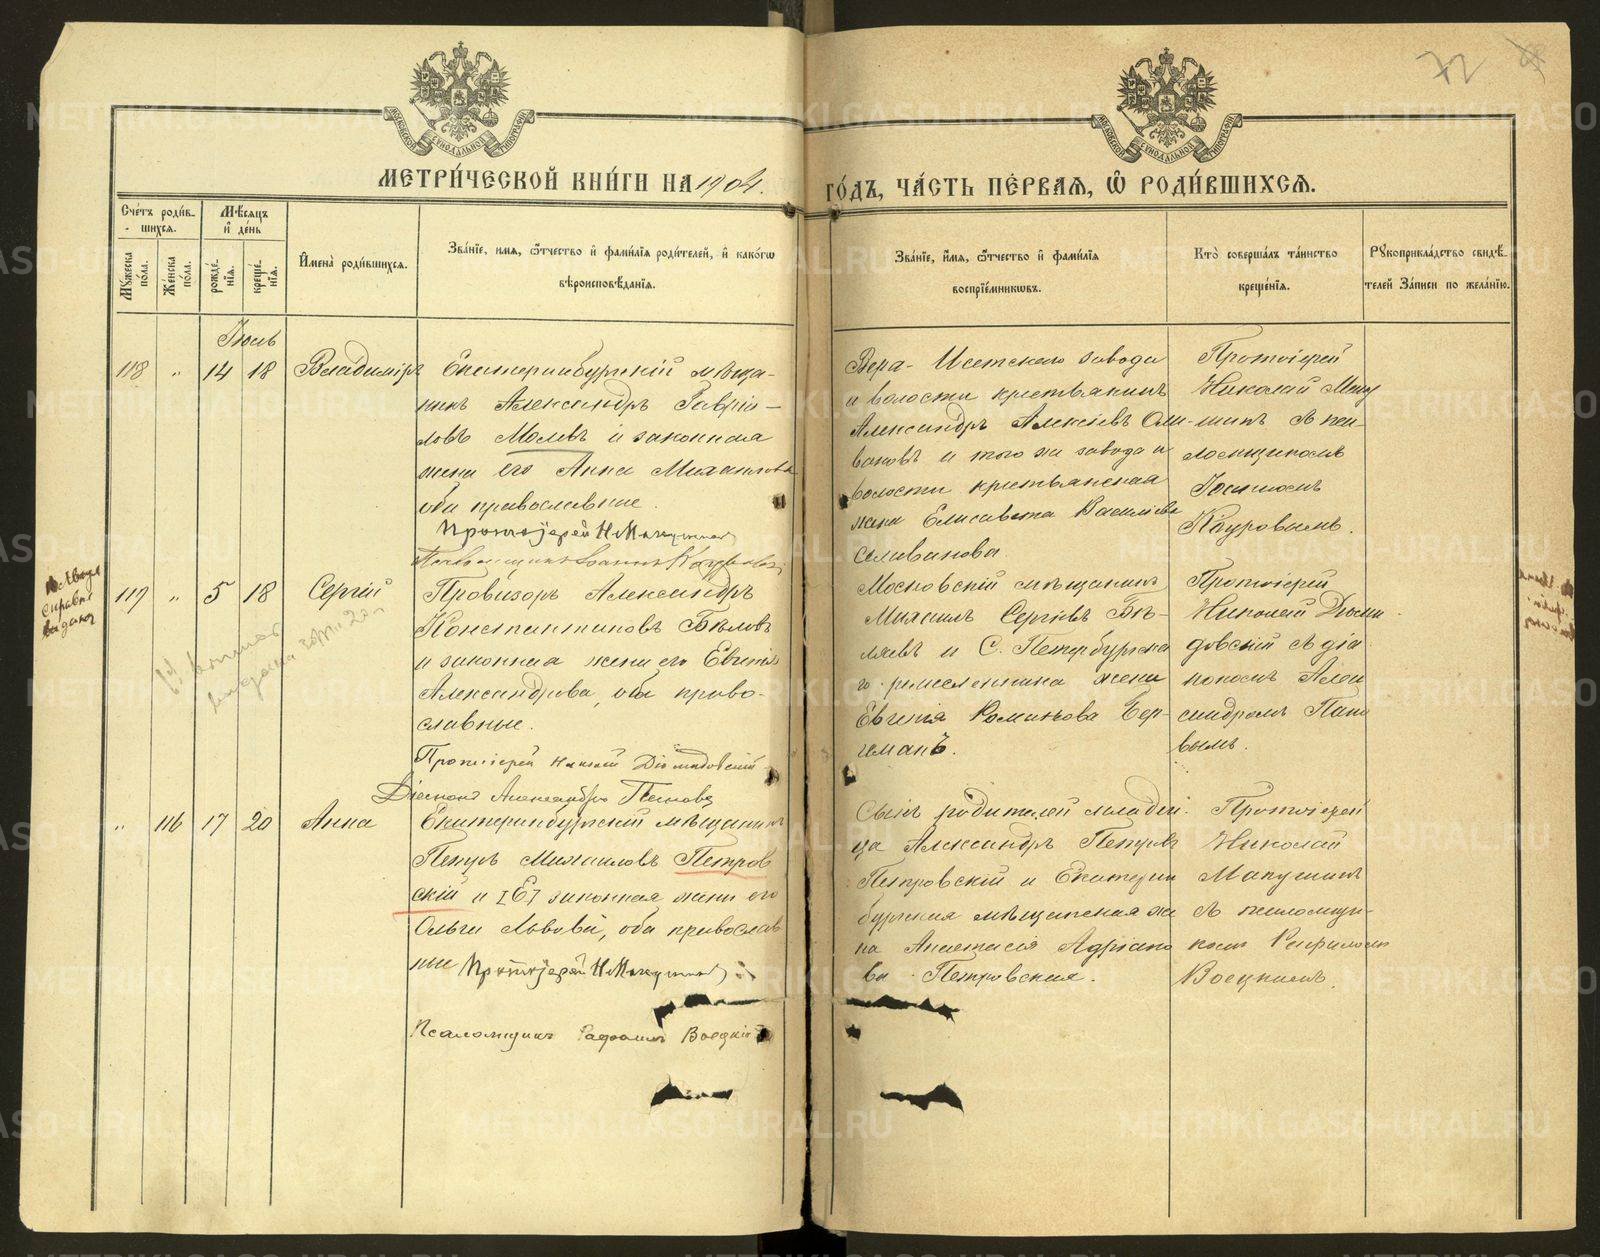 МЕТРИ́ЧЕСКОЙ КНИ́ГИ НА 1904.
ГО́ДЪ, ЧА́СТЬ ПЕ́РВАѦ, Ѽ РОДИ́ВШИХСѦ.
МОСКОВСКОЙ СѴНОДАЛЬНОЙ ТИПОГРАФІИ
МОСКОВСКОЙ СѴНОДАЛЬНОЙ ТИПОГРАФІИ
72
Сче́тъ роди́в-
шихся.
Мѣсяцъ
и де́нь
Му́жеска по́ла.
Же́нска по́ла.
рожде́-нїя.
креще́-нїя.
И҆мена̀ роди́вшихся.
Зва́нїе, имя, ѻ҆́тчество и҆ фами́лїя роди́телей, и҆ како́гѡ
вѣроисповѣ́данїя.
Зва́нїе, и҆́мя, ѻ҆́тчество и҆ фами́лїя
воспрїе́мниковъ.
Кто̀ соверша́лъ та́инство
креще́нїя.
Рꙋкоприкла́дство свидѣ́-
телей За́писи по жела́нїю.
Іюль
118 " 14 18 Владиміръ
Екатеринбургскій мѣща-
нинъ Александръ Гавріи-
ловъ Молевъ и законная
жена его Анна Михаилова
оба православные.
Протоіерей Н. Мапушинъ
Псаломщикъ Іоаннъ Кауровъ
Верх-Исетскаго завода
и волости крестьянинъ
Александръ Алексіевъ Сели-
вановъ и того же завода и
волости крестьянская
жена Елисавета Василіева
Селиванова.
Протоіерей
Николай Мапу-
шинъ съ пса-
ломщикомъ
Іоанномъ
Кауровымъ.
119 " 5 18 Сергій
Провизоръ Александръ
Константиновъ Бѣловъ
и законная жена его Евгенія
Александрова, оба право-
славные.
Протоіерей Николай Діомидовскій
Діаконъ Александръ Поповъ
Московскій мѣщанинъ
Михаилъ Сергіевъ Бѣ-
ляевъ и С. Петербургска-
го ремесленника жена
Евгенія Романова Бер-
геманъ.
Протоіерей
Николай Діоми-
довскій съ діа-
кономъ Алек-
сандромъ Попо-
вымъ.
" 116 17 20 Анна
Екатеринбургскій мѣщанинъ
Петръ Михаиловъ Петров-
скій и [Е] законная жена его
Ольга Львова, оба православ-
ные Протоіерей Н. Мапушинъ
Псаломщикъ Рафаилъ Воецкій
Сынъ родителей младен-
ца Александръ Петровъ
Петровскій и Екатерин-
бургская мѣщанская же-
на Анастасія Адріано-
ва Петровская.
Протоіерей
Николай
Мапушинъ
съ псаломщи-
комъ Рафаиломъ
Воецкимъ.
METRIKI.GASO-URAL.RU